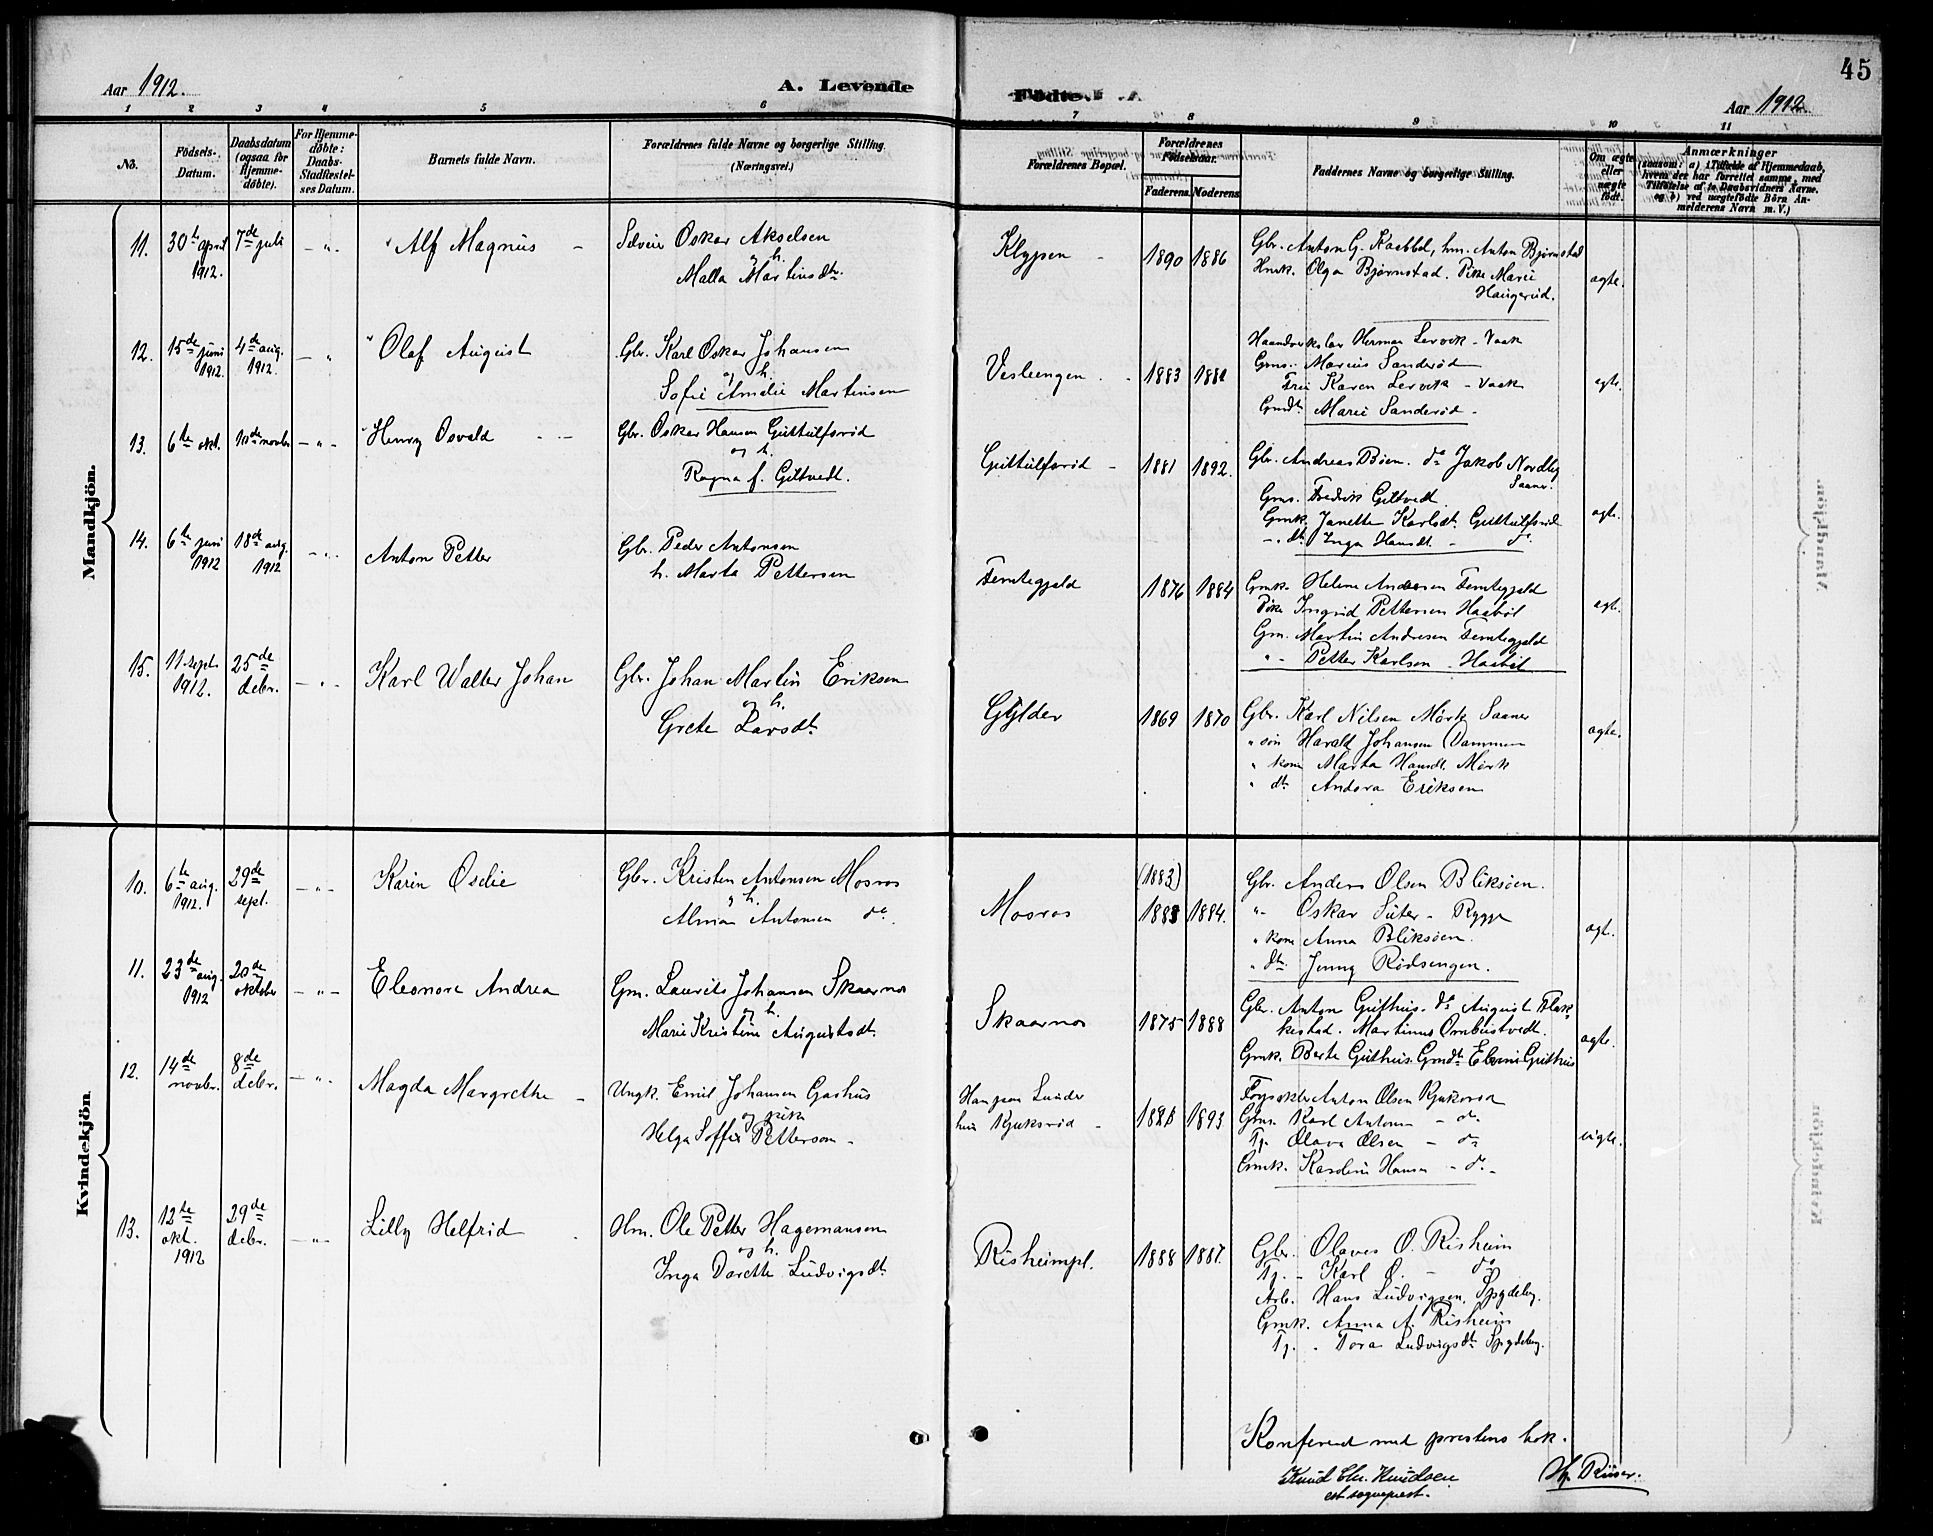 45
Aar 1912.
A. Levende
Fødte.
Aar 1912
1 2 3 4 5 6 7 8 9 10 11
No.
Fødsels-Datum.
Daabsdatum (ogsaa for Hjemme-døbte).
For Hjemme-døbte: Daabs-Stadfæstel-ses Datum.
Barnets fulde Navn.
Forældrenes fulde Navne og borgerlige Stilling. (Næringsvei.)
Forældrenes Bopæl.
Forældrenes Fødselsaar.
Faderens.
Moderens.
Faddernes Navne og borgerlige Stilling.
Om ægte eller uægte født.
Anmærkninger
(saasom: a) i Tilfælde af Hjemmedaab, hvem der har forrettet samme, med Tilføielse af to Daabsvidners Navne, og b) ved uægtefødte Børn An-melderens Navn m. V.)
Mandkjön.
11. 30te april 1912. 7de juli - " - Alf Magnus - Oskar Akselsen
og h.
Malla Martinsdt.
Klypen - 1890 1886
Gbr. Anton G. Kabbel, hm. Anton Bjørnstad
Hmk. Olga Bjørnstad. Pike Marie
Haugerud.
ægte.
12. 15de juni 1912. 4de aug. 1912. - " Olaf August
Gbr. Karl Oskar Johansen
og h.
Sofie Amalie Martinsen
Vesleengen. - 1883 1881
Haandverkslær Herman Lervik - Vaak
Gms. Marius Sanderød
Frue Karen Lervik - Vaak
Gmdt. Marie Sanderød -
egt.
13. 6te okt. 10de novbr - " - Henry Osvald - -
Gbr. Oskar Hansen Guttulfsrød
og h.
Ragna f. Giltvedt.
Guttulfsrød - 1881 1892.
Gbr. Andreas Bøen. do Jakob Nordby
Saaner.
Gms. Fredrik Giltvedt
Gmk. Janette Karlsdt. Guttulfsrød
- " dt. Inga Hansdt. - do
ægt.
14. 6te juni 1912 18de aug. 1912 - " - Anton Petter
Gbr. Peder Antonsen
h. Marta Pettersen
Femtegjeld 1876 1884
Gmk. Helene Andersen Femtegjeld
Pike Ingrid Pettersen Haabøl
Gm. Martin Andresen Femtegjeld
" - Petter Karlsen - Haabøl
egt.
15. 11. sept. 1912. 25de debr. - " - Karl Walter Johan
Gbr. Johan Martin Eriksen
og h.
Grete Larsdt.
Gylder 1869 1870
Gbr. Karl Nilsen Mörk Saaner
" søn Harald Johansen Dammen
" kone Marta Hansdt. Mörk
" dt. Andora Eriksen
ægte.
Kvindekjön
10. 6te aug. 1912. 29de sept. - " - Karin Oselie
Gbr. Kristen Antonsen Mosros
og h.
Alma Antonsen do
Mosros (1883) 1883 1884.
Gbr. Anders Olsen Bliksøen.
" - Oskar Suter - Rygge
" kone Anna Bliksøen.
" dt. Jenny Rødsengen.
ægt.
11. 23de aug. 1912 20de oktober - " - Eleonore Andrea
Gm. Laurits Johansen Skaarnos
og h.
Marie Kristine Augustsdt.
Skaarnos 1875 1888
Gbr. Anton Guthus. do August Flak-
kestad. Martinus Ombustvedt.
Gmk. Berte Guthus. Gmdt. Guthus
ægte.
12. 14de novbr. 8de debr. - " - Magda Margrethe -
Ungk. Emil Johansen Gashus
og pike
Helga Soffie Pettersen -
Han paa Lunder
hun Kjuksrød - 1893
Anton Olsen Kjuksrød
Gms. Karl Antons - do
Tj. Olava Olsen - do
Gmk. Karoline Hansen - do -
uegte.
13. 12te okt. 1912 29de debr. - " - Lilly Helfrid
Hm. Ole Petter Hagemansen
og h.
Inga Dorette Ludvigsdt.
Risheimpl. 1888 1887.
Gbr. Olaves O. Risheim
Tj. - Karl O. - do
Arb. Hans Ludvigsen, Spydeberg.
Gmk. Anna A. Risheim
Tj. - Tora Ludvigsdt. Spydeberg.
Konfereret med prestens bok.
Knud Chr. Knudsen
est sogneprest.